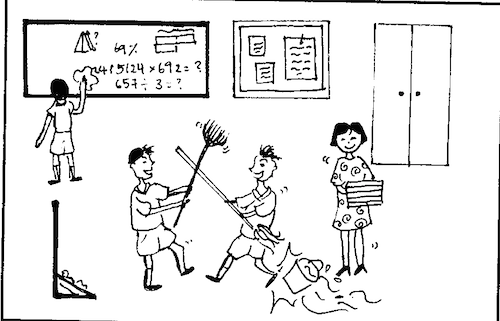 ?
69%
2415124 × 692 = ?
657 ÷ 3 = ?